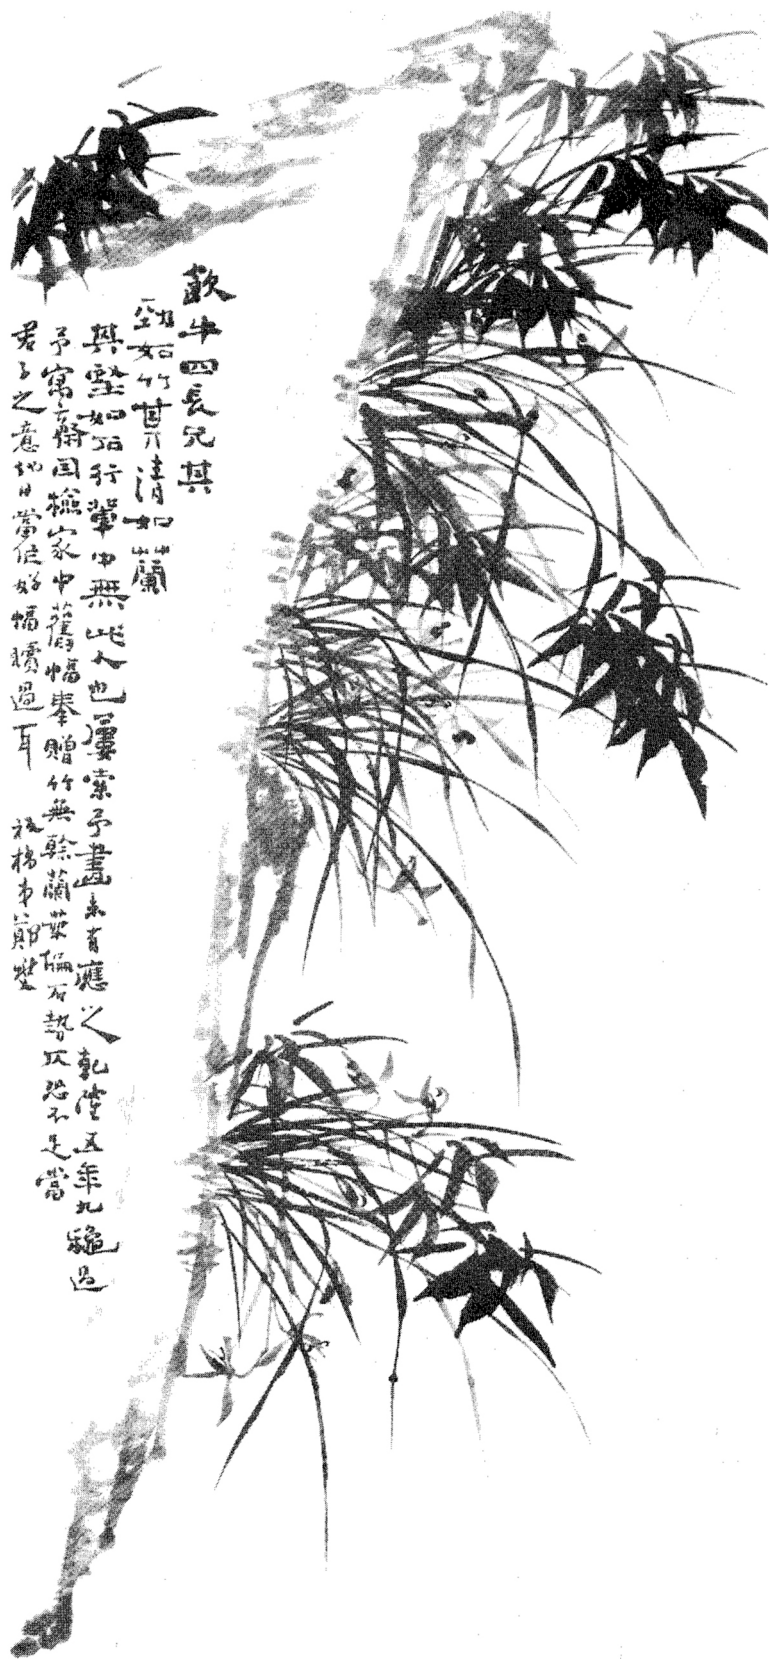 歗牛四長兄其
勁如竹其清如蘭
其堅如石行輩中無此人也屢索予畫未有應之乾隆五年九穐過
予寓齋因檢家中舊幅奉贈竹無榦蘭葉偏石勢仄恐不足當
君子之意他日當作好幅贖過耳 板橋弟鄭燮